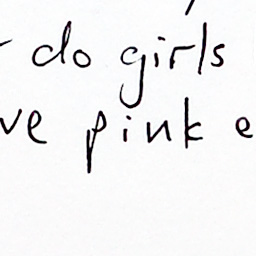 do girls
ve pink e